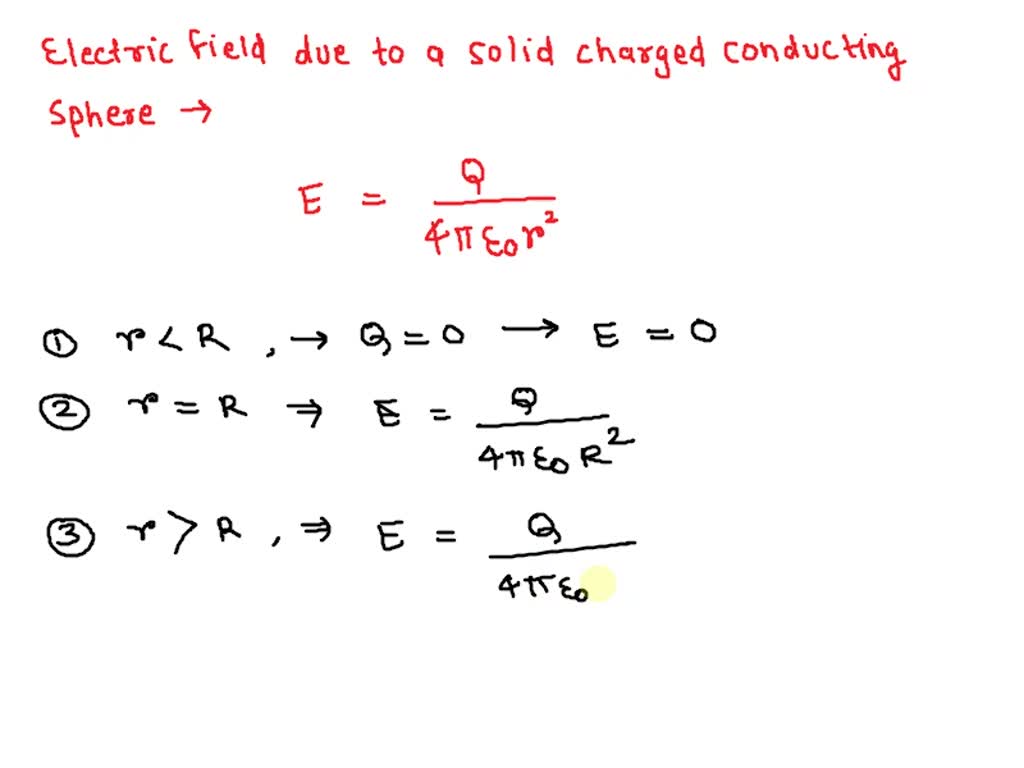 Electric field due to a solid charged conducting
Sphere →
E = Q / 4πε₀r²
① r < R , → Q = 0 → E = 0
② r = R ⇒ E = Q / 4πε₀R²
③ r > R , ⇒ E = Q / 4πε₀